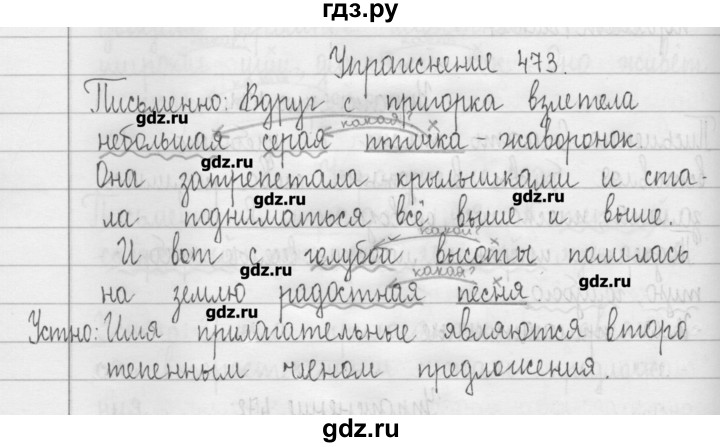 гдз.ру
Упражнение 473.
Письменно: Вдруг с пригорка взлетела
gdz.ru
какая?
небольшая серая птичка – жаворонок
gdz.ru
Она затрепетала крылышками и ста-
gdz.ru gdz.ru
ла подниматься всё выше и выше.
какой?
И вот с голубой высоты полилась
gdz.ru какая? gdz.ru
на землю радостная песня
gdz.ru
Устно: Имя прилагательные являются второ
степенным членом предложения.
gdz.ru